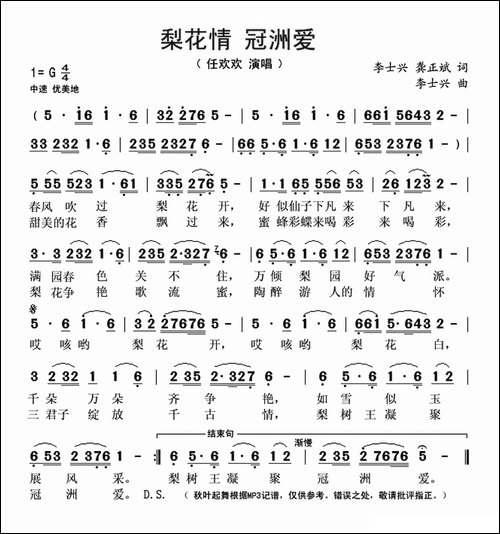 梨花情 冠洲爱
（ 任欢欢 演唱 ）
1= G 4/4
李士兴 龚正斌 词
中速 优美地
李士兴 曲
( 5 · i6 1 · 6 | 32 2276 5 - | 5 · i6 1 · 6 | 661 5643 2 - |
33 232 1 · 6 | 235 2327 6 - | 66 5 · 6 1 · 6 | 235 2376 1 - ) |
5 55 523 1 · 61 | 335 276 5 - | 1 · 165 556 53 | 26 123 2 - |
春风 吹 过 梨 花 开， 好 似仙子下凡 来 下 凡 来，
甜美的花 香 飘 过 来， 蜜 蜂彩蝶来喝 彩 来 喝 彩，
3 · 3 232 1 · 6 | 235 2 · 327 6 - | 6 5 · 6 1 · 6 | 653 2376 1 - |
满 园春 色 关 不 住， 万 倾 梨 园 好 气 派。
梨 花争 艳 歌 流 蜜， 陶 醉 游 人的 情 怀
5 · 6 1 · 6 | 3 2 27676 5 - | 5 · 6 1 · 6 | 661 5 · 643 2 - |
哎 咳 哟 梨 花 开， 哎 咳 哟 梨 花 白，
3 232 1 · 6 | 2 35 2 · 327 6 - | 6 5 · 6 1 · 6 12 |
千 朵 万 朵 齐 争 艳， 如 雪 似 玉
三 君子 绽 放 千 古 情， 梨 树 王 凝 聚
结束句
渐慢
6 53 2 376 1 - :| 6 5 · 6 1 · 6 12 | 2 35 2 · 7676 1 - ‖
展 风 采。 梨 树 王 凝 聚 冠 洲 爱。
冠 洲 爱。 D.S.（ 秋叶起舞根据MP3记谱，仅供参考。错误之处，敬请批评指正。）